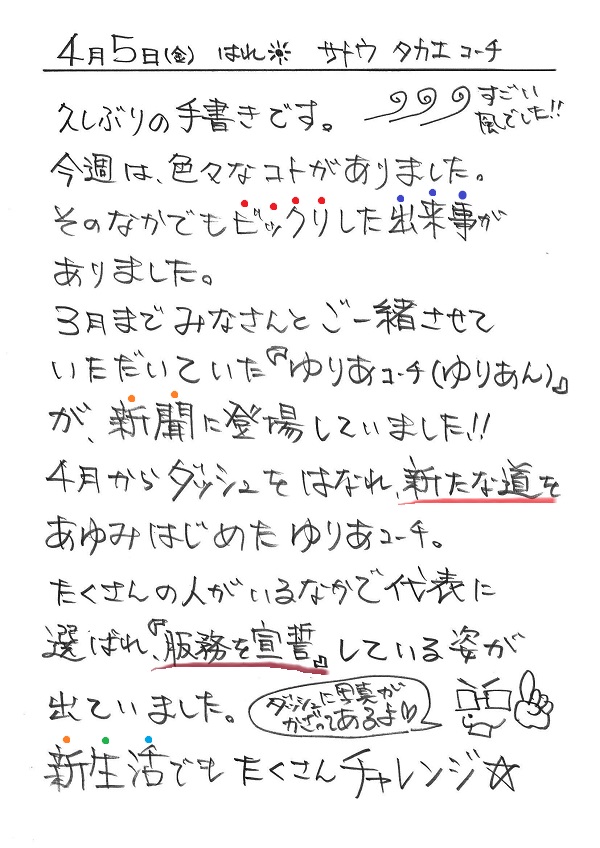 4月5日(金) はれ☀ サトウ タカエ コーチ
久しぶりの手書きです。
すごい
風でした!!
今週は、色々なコトがありました。
そのなかでもビックリした出来事が
ありました。
3月まで みなさんと ご一緒させて
いただいていた『ゆりあコーチ(ゆりあん)』
が、新聞に登場していました!!
4月から ダッシュを はなれ、新たな道を
あゆみはじめた ゆりあコーチ。
たくさんの人がいるなかで代表に
選ばれ、『服務を宣誓』している姿が
出ていました。
ダッシュに写真が
かざってあるよ♡
新生活でも たくさん チャレンジ☆